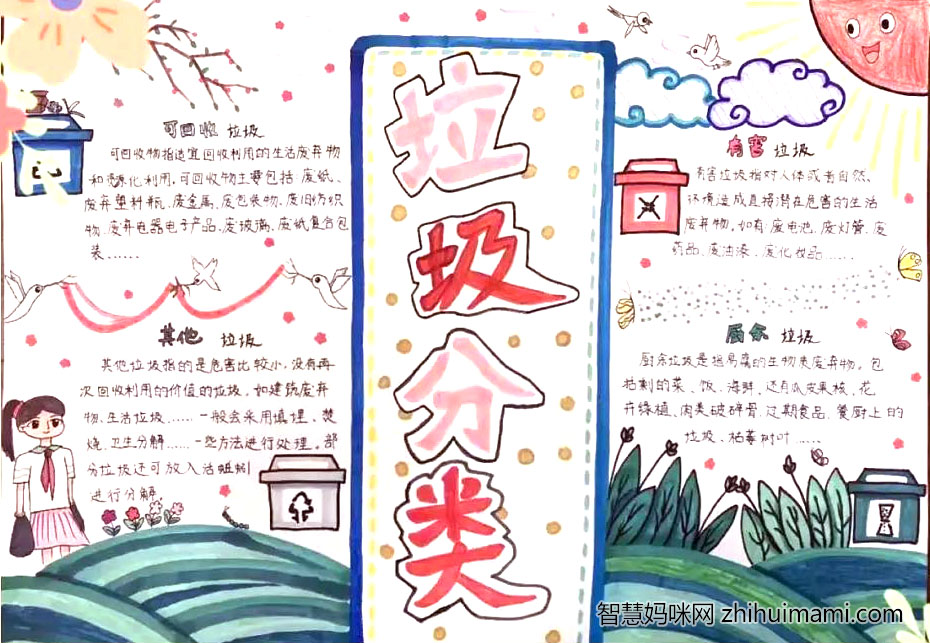 垃圾分类
可回收 垃圾
可回收物指适宜回收利用的生活废弃物
和资源化利用,可回收物主要包括:废纸、
废弃塑料瓶、废金属、废包装物、废旧纺织
物、废弃电器电子产品、废玻璃、废纸复合包
装......
其他 垃圾
其他垃圾指的是危害比较小,没有再
次回收利用的价值的垃圾。如建筑废弃
物,生活垃圾......一般会采用填埋、焚
烧、卫生分解......一些方法进行处理。部
分垃圾还可放入活蚯蚓
进行分解。
有害 垃圾
有害垃圾指对人体或者自然、
环境造成直接潜在危害的生活
废弃物。如有:废电池、废灯管、废
药品、废油漆、废化妆品......
厨余 垃圾
厨余垃圾是指易腐的生物质废弃物。包
括剩的菜、饭、海鲜,还有瓜皮果核、花
卉绿植、肉类破碎骨、过期食品、餐厨上的
垃圾、枯草树叶......
智慧妈咪网 zhihuimami.com